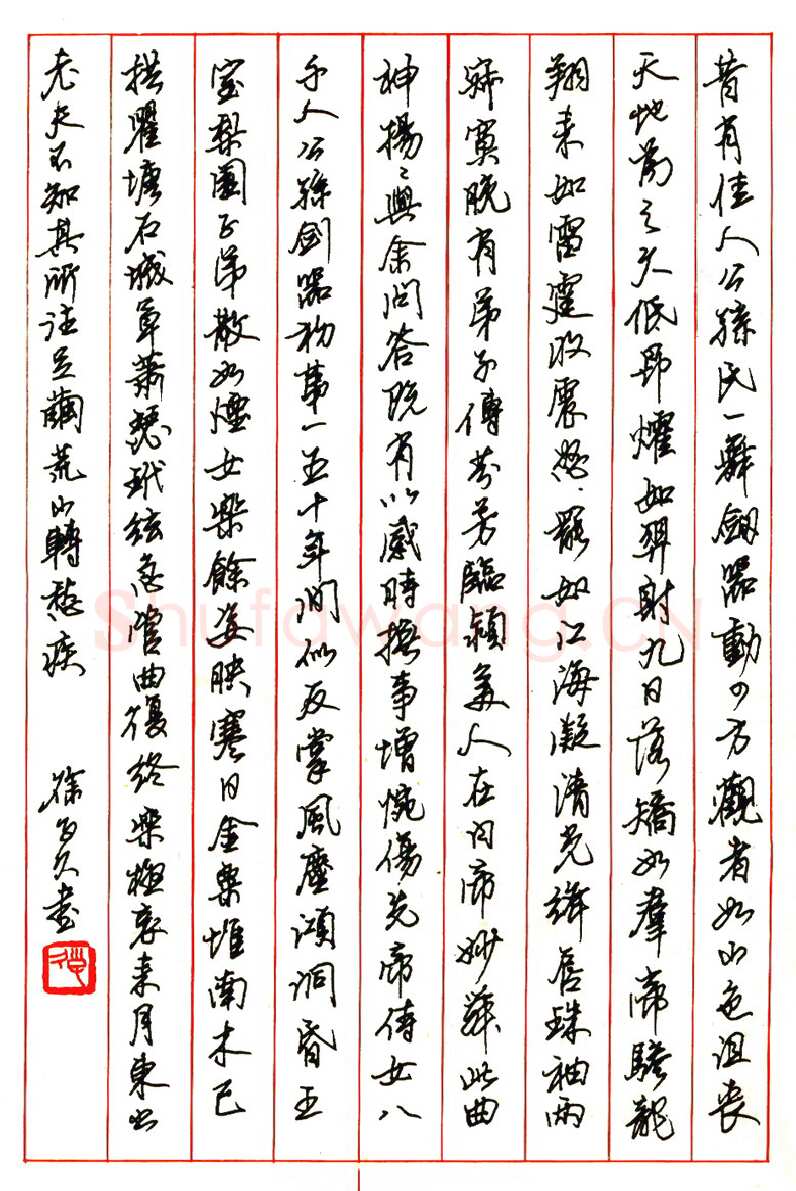 昔有佳人公孫氏一舞劍器動四方觀者如山色沮喪
天地為之久低昂㸌如羿射九日落矯如羣帝驂龍
翔來如雷霆收震怒罷如江海凝清光絳唇珠袖兩
寂寞脫有弟子傳芬芳臨潁美人在白帝妙舞此曲
神揚〻與余問答既有以感時撫事增惋傷先帝侍女八
千人公孫劍器初第一五十年間似反掌風塵澒洞昏王
室梨園子弟散如煙女樂餘姿映寒日金粟堆南木已
拱瞿塘石城草蕭瑟玳絃急管曲復終樂極哀來月東出
老夫不知其所往足繭荒山轉愁疾 徐
Shufawang.CN